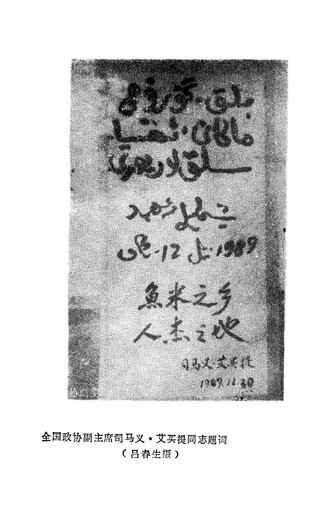 ماكانى، ئىختىسا
سلىقلار يۇرتى
1989 - يىل 12 - ئاي
魚米之乡
人杰之地
司马义·艾买提
1989.12.30
全国政协副主席司马义·艾买提同志题词
（吕春生摄）